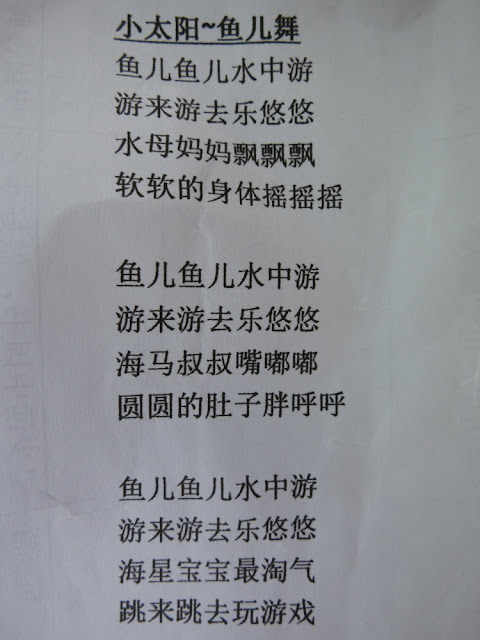 小太阳~鱼儿舞
鱼儿鱼儿水中游
游来游去乐悠悠
水母妈妈飘飘飘
软软的身体摇摇摇
鱼儿鱼儿水中游
游来游去乐悠悠
海马叔叔嘴嘟嘟
圆圆的肚子胖呼呼
鱼儿鱼儿水中游
游来游去乐悠悠
海星宝宝最淘气
跳来跳去玩游戏